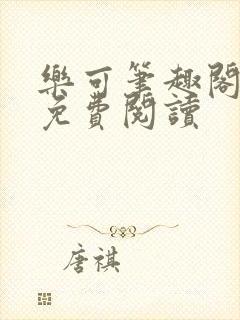 樂可筆趣閣
免費閱讀
唐祺